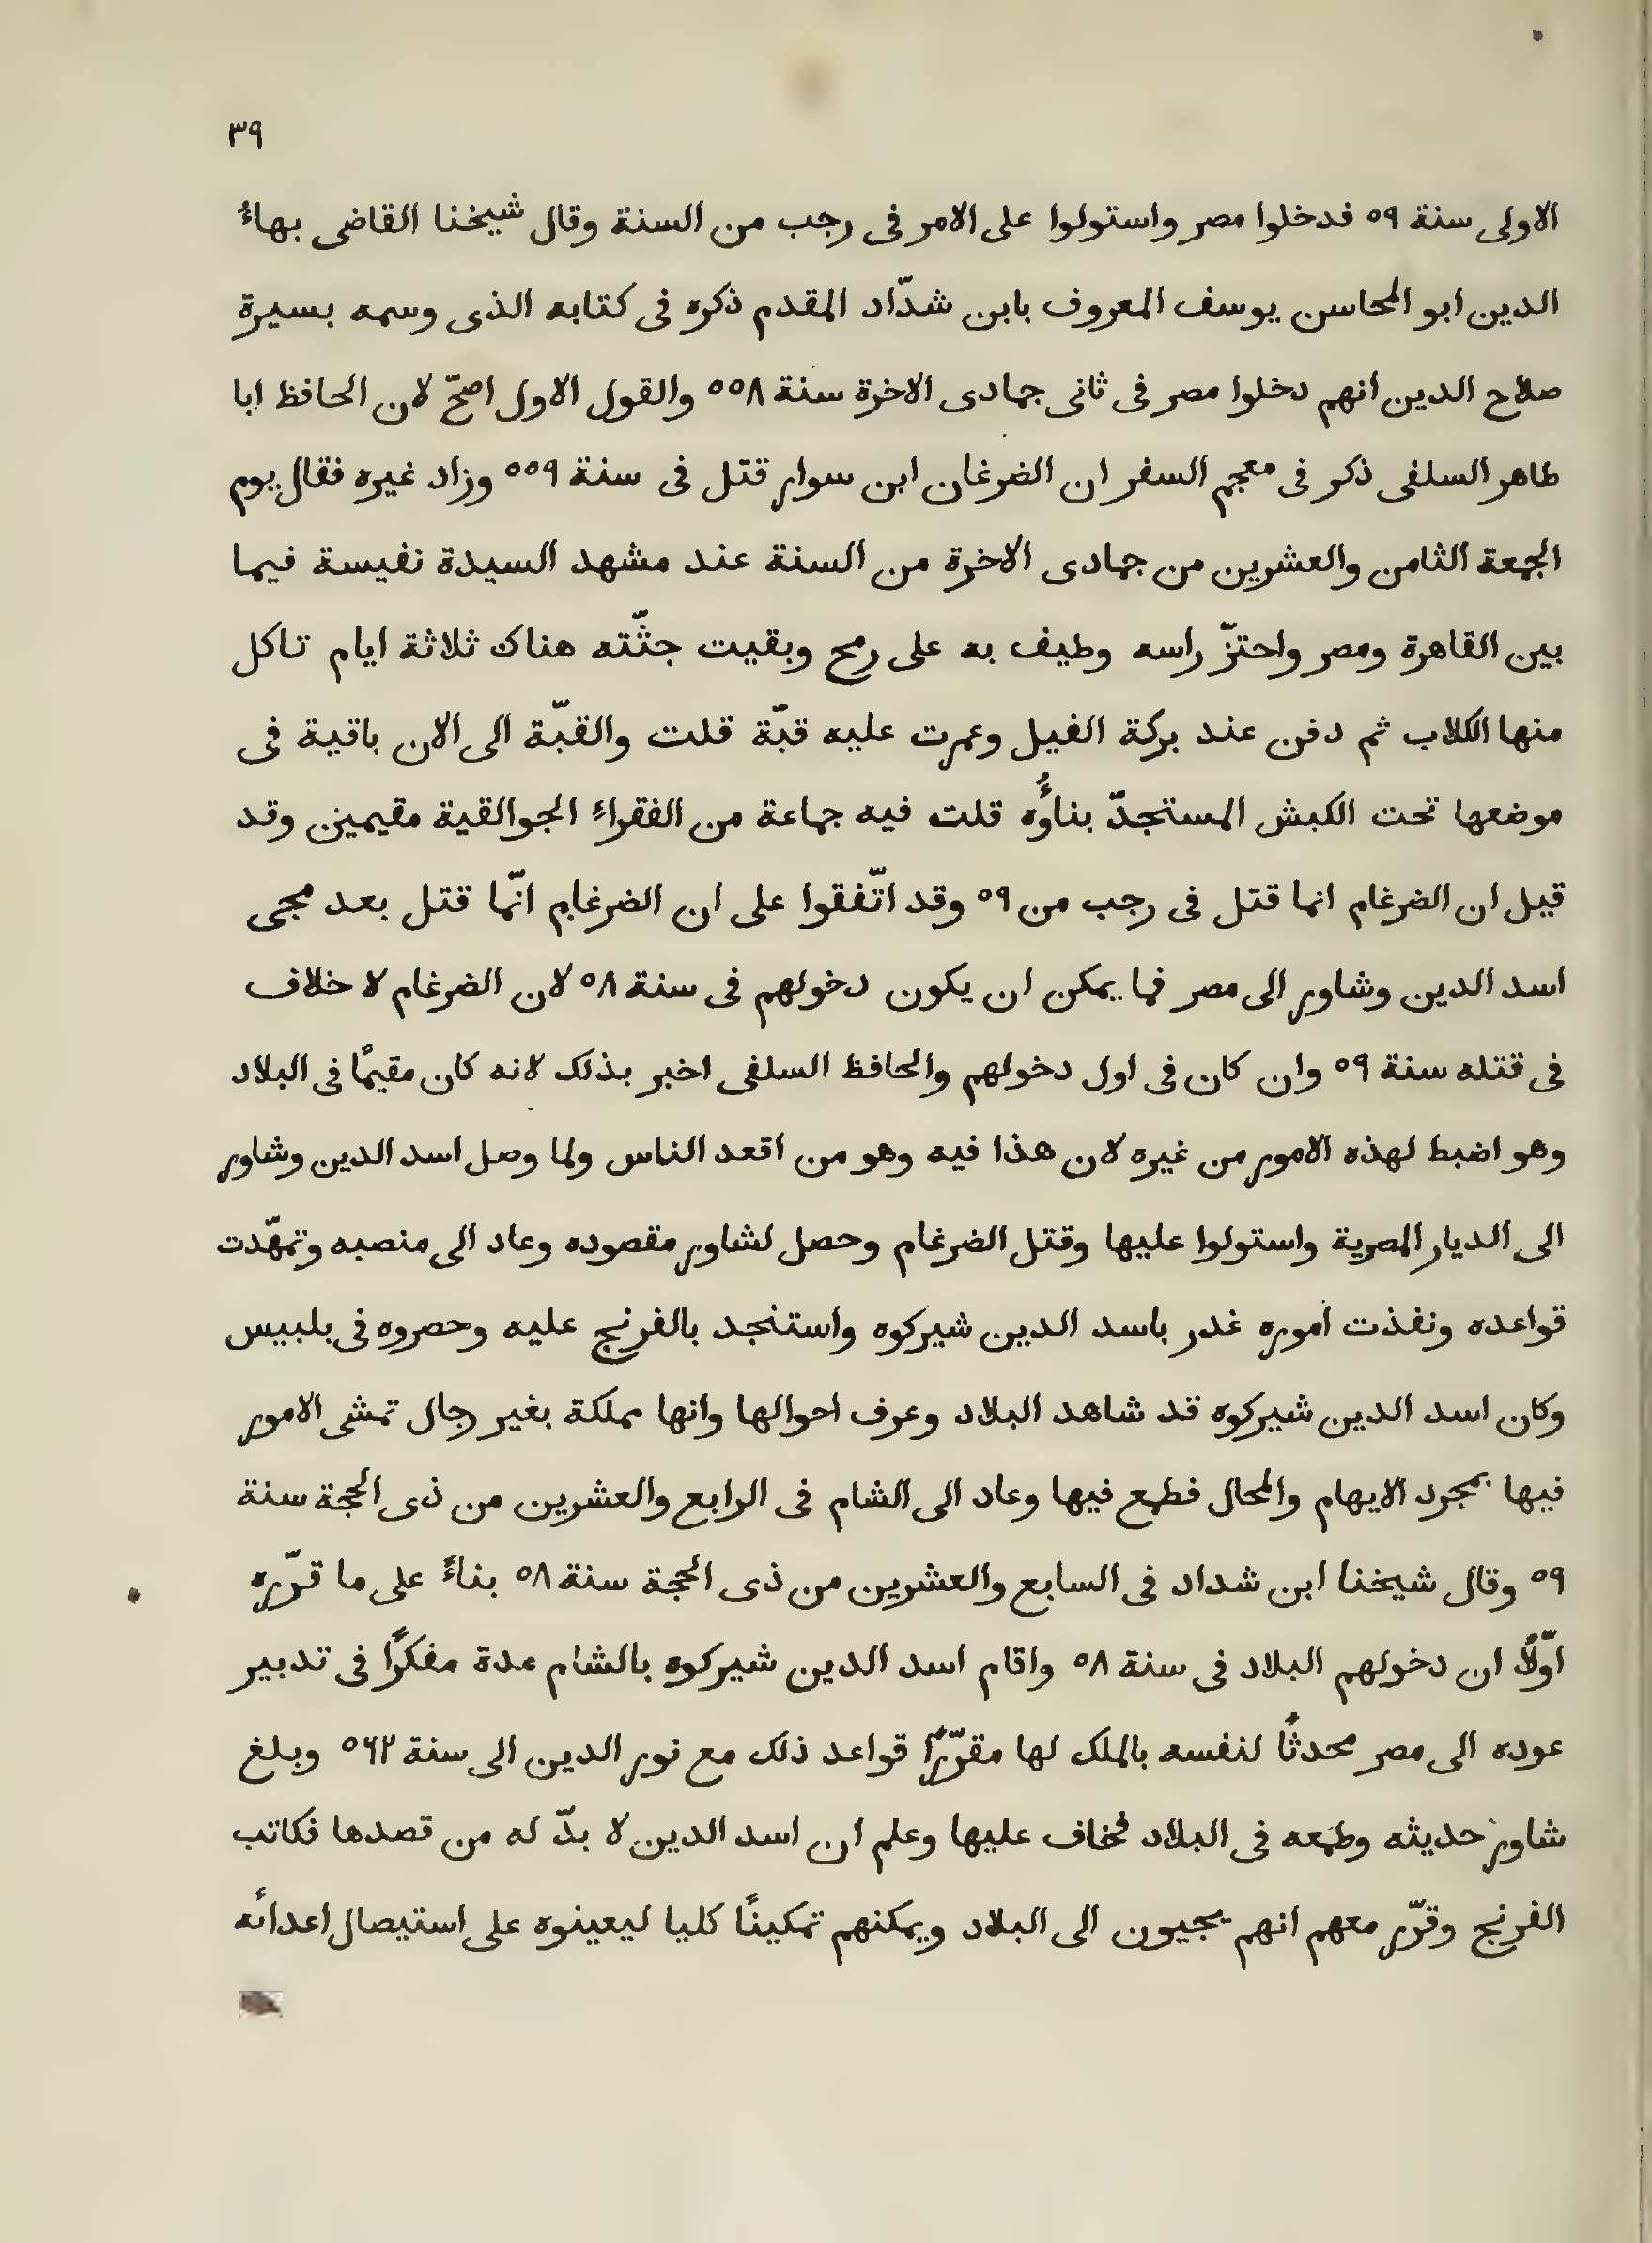 ٣٩
الاولى سنة ٥٩ فدخلوا مصر واستولوا على الامر فى رجب من السنة وقال شيخنا القاضى بهاءُ
الدين ابو المحاسن يوسف المعروف بابن شدّاد المقدم ذكره فى كتابه الذى وسمه بسيرة
صلاح الدين انهم دخلوا مصر فى ثانى جمادى الاخرة سنة ٥٥٨ والقول الاول اصحّ لان الحافظ ابا
طاهر السلفى ذكر فى معجم السفر ان الضرغان ابن سوار قتل فى سنة ٥٥٩ وزاد غيره فقال يوم
الجمعة الثامن والعشرين من جمادى الاخرة من السنة عند مشهد السيدة نفيسة فيما
بين القاهرة ومصر واحتزّ راسه وطيف به على رمح وبقيت جثّته هناك ثلاثة ايام تاكل
منها الكلاب ثم دفن عند بركة الفيل وعمرت عليه قبّة قلت والقبّة الى الان باقية فى
موضعها تحت الكبش المستجدّ بناوُه قلت فيه جماعة من الفقراءِ الجوالقية مقيمين وقد
قيل ان الضرغام انما قتل فى رجب من ٥٩ وقد اتّفقوا على ان الضرغام انّما قتل بعد مجى
اسد الدين وشاور الى مصر فما يمكن ان يكون دخولهم فى سنة ٥٨ لان الضرغام لا خلاف
فى قتله سنة ٥٩ وان كان فى اول دخولهم والحافظ السلفى اخبر بذلك لانه كان مقيمًا فى البلاد
وهو اضبط لهذه الامور من غيره لان هذا فيه وهو من اقعد الناس ولما وصل اسد الدين وشاور
الى الديار المصرية واستولوا عليها وقتل الضرغام وحصل لشاور مقصوده وعاد الى منصبه وتمهّدت
قواعده ونفذت اموره غدر باسد الدين شيركوه واستنجد بالفرنج عليه وحصروه فى بلبيس
وكان اسد الدين شيركوه قد شاهد البلاد وعرف احوالها وانها مملكة بغير رجال تمشى الامور
فيها بمجرد الايهام والمحال فطمع فيها وعاد الى الشام فى الرابع والعشرين من ذى الحجة سنة
٥٩ وقال شيخنا ابن شداد فى السابع والعشرين من ذى الحجة سنة ٥٨ بناءً على ما قرّره
اوّلًا ان دخولهم البلاد فى سنة ٥٨ واقام اسد الدين شيركوه بالشام مدة مفكرًا فى تدبير
عوده الى مصر محدثًا لنفسه بالملك لها مقرّرًا قواعد ذلك مع نور الدين الى سنة ٥٦٢ وبلغ
شاور حديثه وطمعه فى البلاد فخاف عليها وعلم ان اسد الدين لا بدّ له من قصدها فكاتب
الفرنج وقرّر معهم انهم يجيون الى البلاد ويمكنهم تمكينًا كليا ليعينوه على استيصال اعدائه